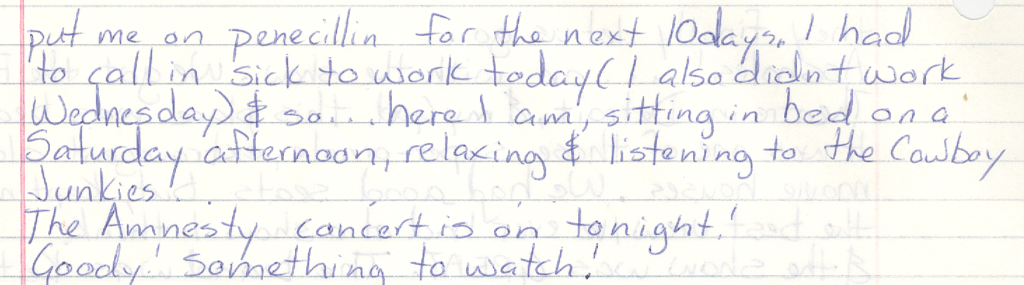 put me on penecillin for the next 10days. I had
to call in sick to work today (I also didnt work
Wednesday) & so... here I am, sitting in bed on a
Saturday afternoon, relaxing & listening to the Cowboy
Junkies...
The Amnesty concert is on tonight!
Goody! Something to watch!